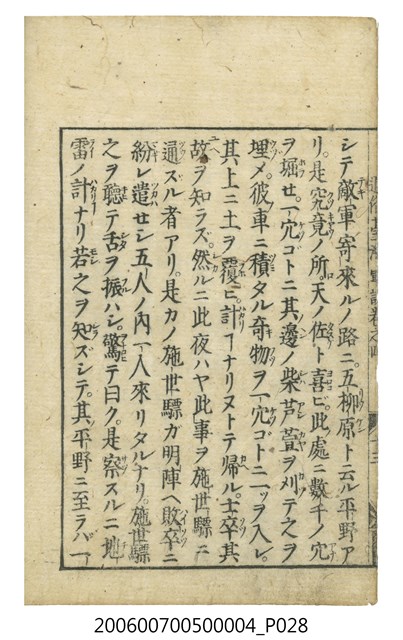 シテ敵軍寄來ルノ路ニ。五柳原ト云ル平野ア
リ。是究竟ノ所。天ノ佐ト喜ビ。此處ニ數千ノ穴
ヲ堀セ。一穴ゴトニ其邊ノ柴芦萱ヲ刈テ之ヲ
埋メ。彼車ニ積タル奇物ヲ一穴ゴトニ一ツヲ入レ。
其上ニ土ヲ覆ヒ。計ヿナリヌトテ帰ル。士卒其
故ヲ知ラズ。然ルニ此夜ハヤ此事ヲ施世驃ニ
通ズル者アリ。是カノ施世驃ガ明陣ヘ敗卒ニ
紛レ遣セシ五人ノ内一人來リタルナリ。施世驃
之ヲ聽テ舌ヲ振ハシ。驚テ曰ク。是察スルニ地
雷ノ計ナリ若之ヲ知ズシテ。其平野ニ至ラバ一
200600700500004_P028